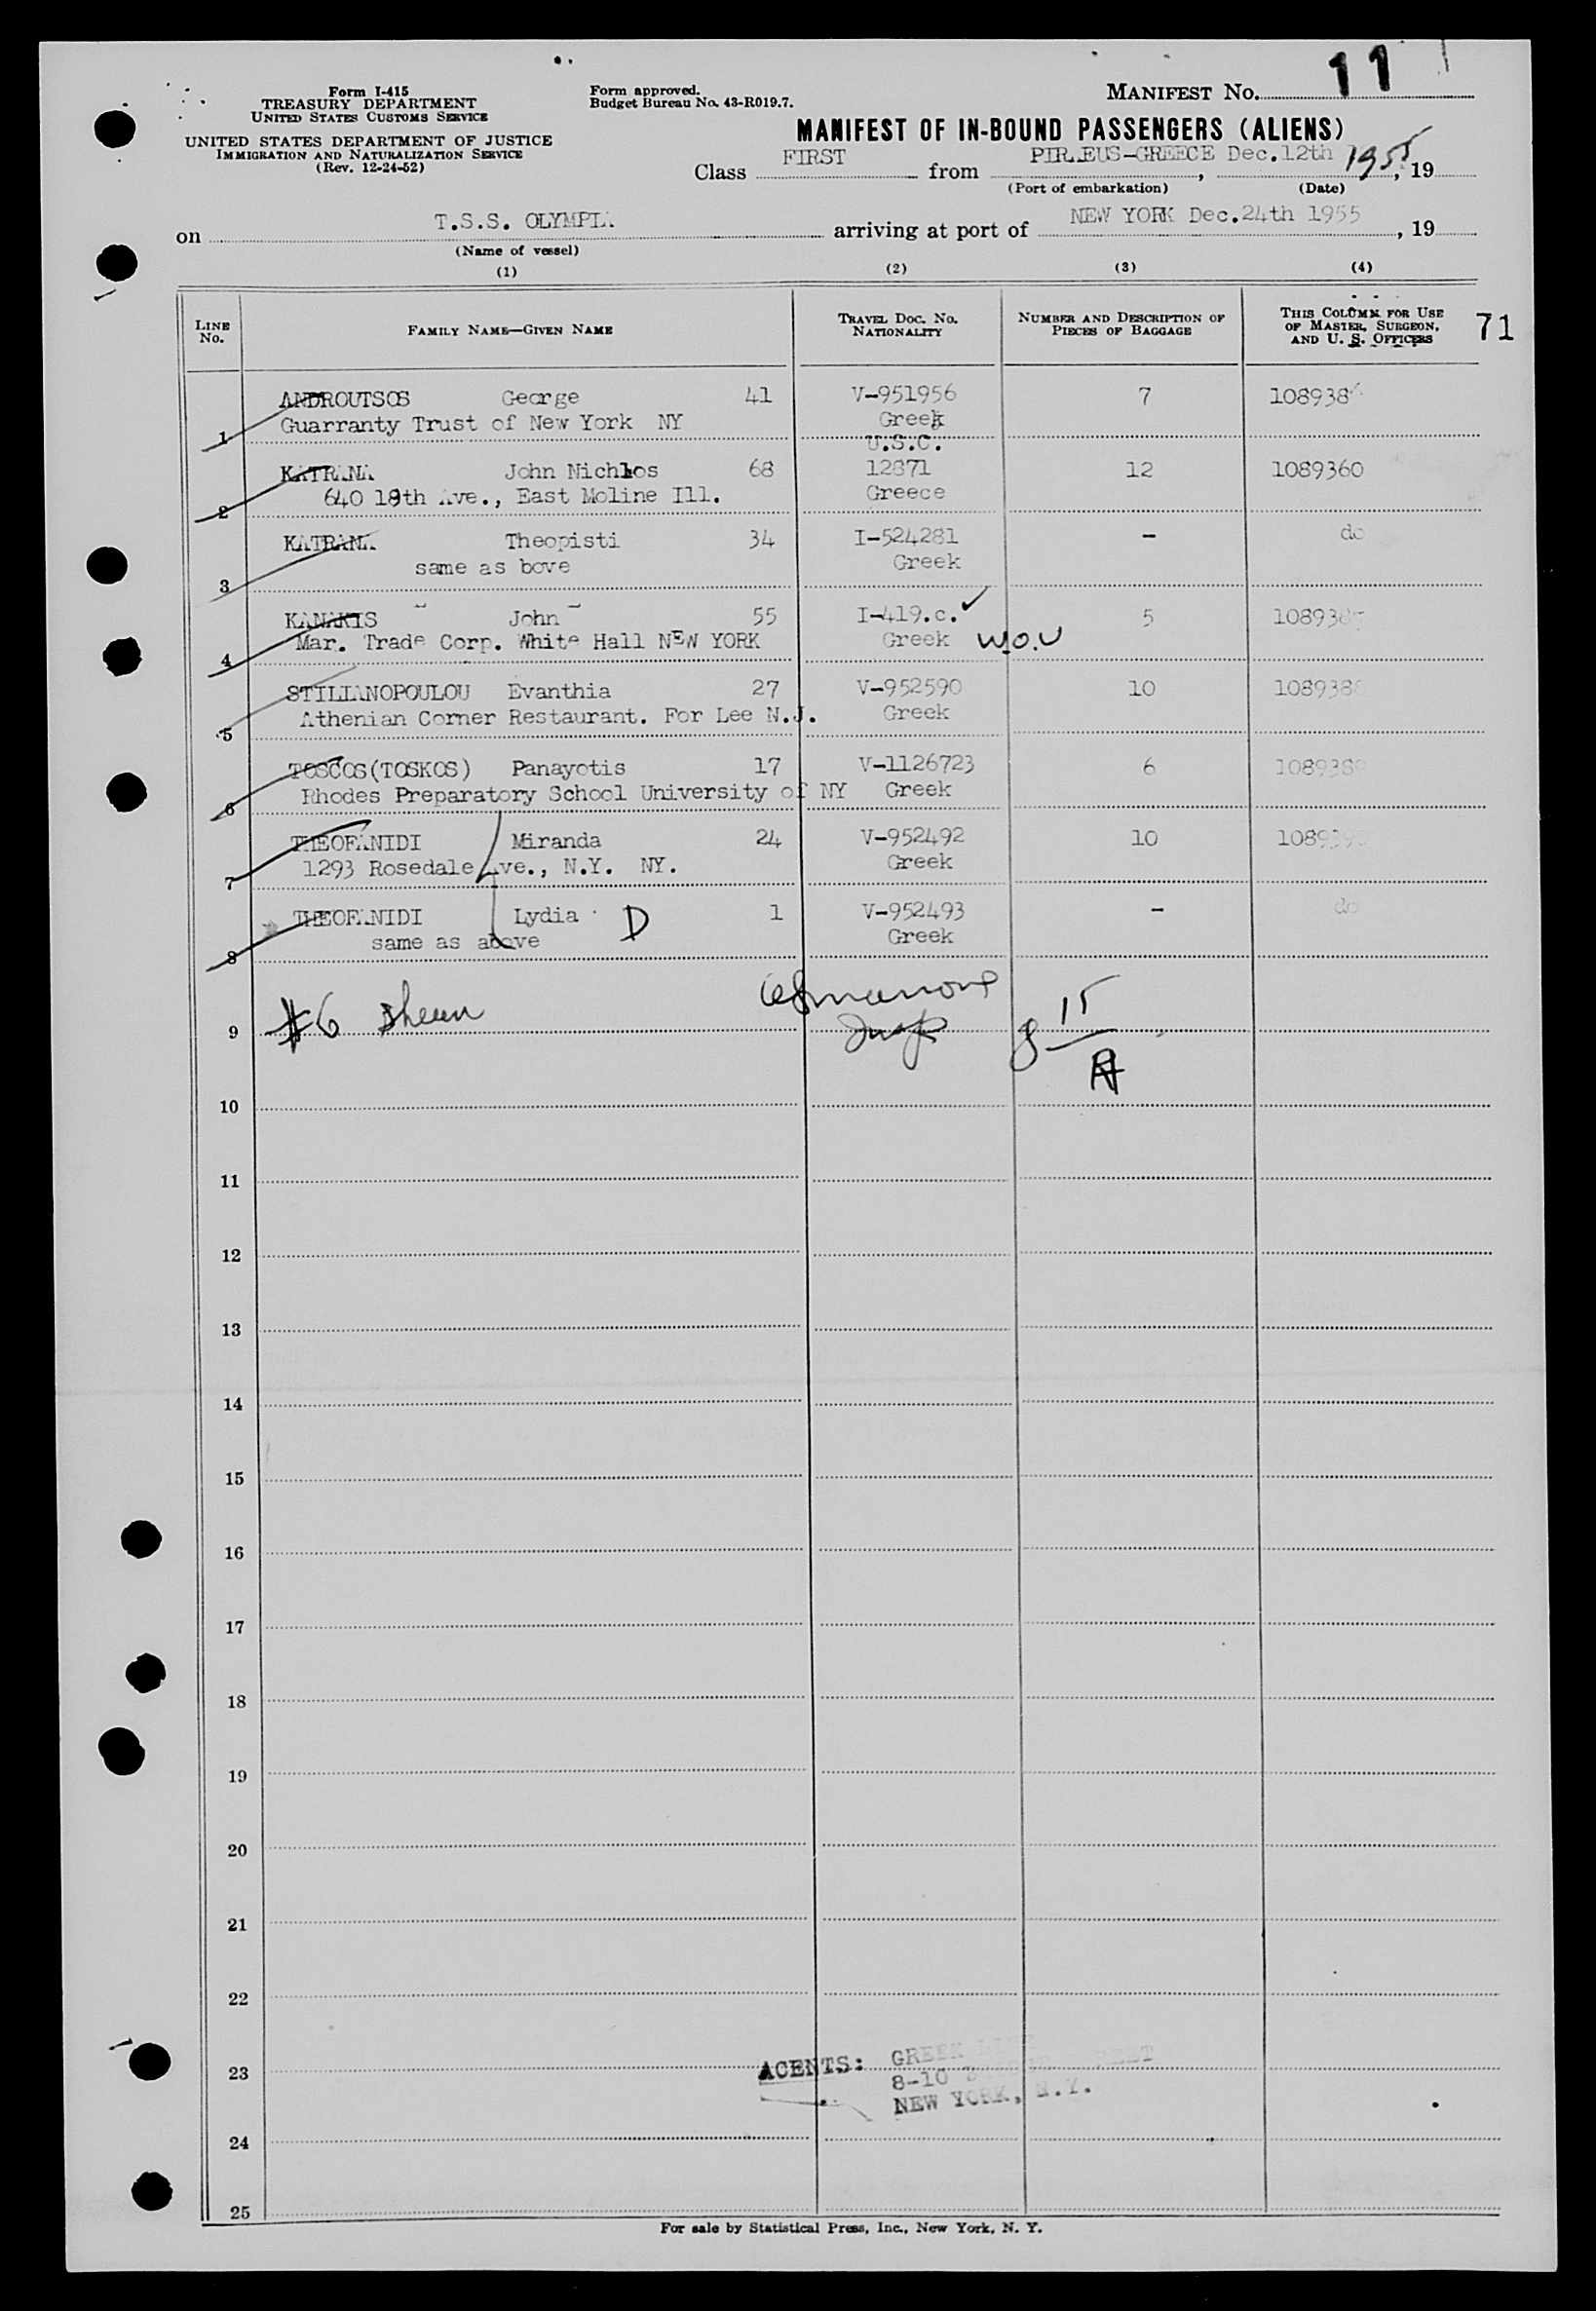 Form I-415
TREASURY DEPARTMENT
UNITED STATES CUSTOMS SERVICE
UNITED STATES DEPARTMENT OF JUSTICE
IMMIGRATION AND NATURALIZATION SERVICE
(Rev. 12-24-52)
Form approved.
Budget Bureau No. 43-R019.7.
MANIFEST No. 11
MANIFEST OF IN-BOUND PASSENGERS (ALIENS)
Class FIRST from PIR.EUS-GREECE Dec.12th 1955, 19
(Port of embarkation) (Date)
on T.S.S. OLYMPI. arriving at port of NEW YORK Dec.24th 1955, 19
(Name of vessel)
(1) (2) (3) (4)
LINE No. FAMILY NAME—GIVEN NAME TRAVEL DOC. No. NATIONALITY NUMBER AND DESCRIPTION OF PIECES OF BAGGAGE THIS COLUMN FOR USE OF MASTER, SURGEON, AND U. S. OFFICERS 71
ANDROUTSOS George 41 V-951956 7 108938
1 Guarranty Trust of New York NY Greek
U.S.C.
KATRANA John Nichlos 68 12871 12 1089360
2 640 18th Ave., East Moline Ill. Greece
KATRANA Theopisti 34 I-524281 - do
3 same as bove Greek
KANAKIS John 55 I-419.c. 5 108938
4 Mar. Trade Corp. White Hall NEW YORK Greek W.O.U
STILIANOPOULOU Evanthia 27 V-952590 10 108938
5 Athenian Corner Restaurant. For Lee N.J. Greek
TOSCOS(TOSKOS) Panayotis 17 V-1126723 6 108938
6 Rhodes Preparatory School University of NY Greek
THEOFANIDI Miranda 24 V-952492 10 10893
7 1293 Rosedale Ave., N.Y. NY. Greek
THEOFANIDI Lydia D 1 V-952493 - do
8 same as above Greek
9 #6 8 15
10
11
12
13
14
15
16
17
18
19
20
21
22
23 AGENTS: GREEK
8-10
NEW YORK, N.Y.
24
25
For sale by Statistical Press, Inc., New York, N. Y.